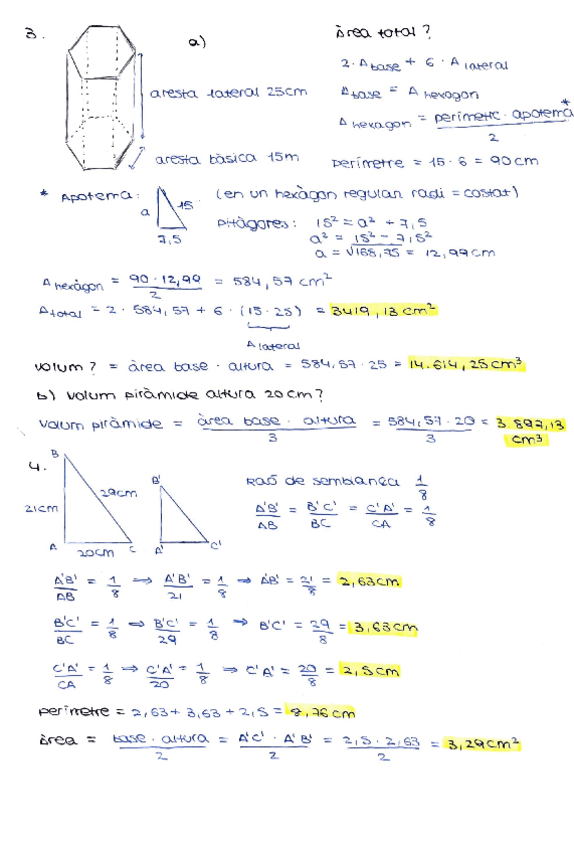 3.
a)
Àrea total?
2. Abase + 6. Alateral
Abase = A hexagon
A hexagon = perímetre. apotema* / 2
perímetre = 15.6 = 90cm
aresta lateral 25cm
aresta bàsica 15m
* Apotema: a 15 7,5 (en un hexàgon regular radi = costat)
Pitàgores: 15² = a² + 7,5
a² = 15² - 7,5²
a = √168,75 = 12,99cm
A hexàgon = 90.12,99 / 2 = 584,57cm²
Atotal = 2. 584,57 + 6. (15.25) = 3419,13cm²
Alateral
volum? = àrea base. altura = 584,57.25 = 14.614,25cm³
b) volum piràmide altura 20cm?
Volum piràmide = àrea base. altura / 3 = 584,57.20 / 3 = 3.897,13 cm³
4.
B
21cm 29cm
A 20cm C
B'
A' C'
Raó de semblança 1/8
A'B'/AB = B'C'/BC = C'A'/CA = 1/8
A'B'/AB = 1/8 ⟹ A'B'/21 = 1/8 ⟹ A'B' = 21/8 = 2,63cm
B'C'/BC = 1/8 ⟹ B'C'/29 = 1/8 ⟹ B'C' = 29/8 = 3,63cm
C'A'/CA = 1/8 ⟹ C'A'/20 = 1/8 ⟹ C'A' = 20/8 = 2,5cm
perímetre = 2,63 + 3,63 + 2,5 = 8,76cm
Àrea = base. altura / 2 = A'C'. A'B' / 2 = 2,5. 2,63 / 2 = 3,29cm²